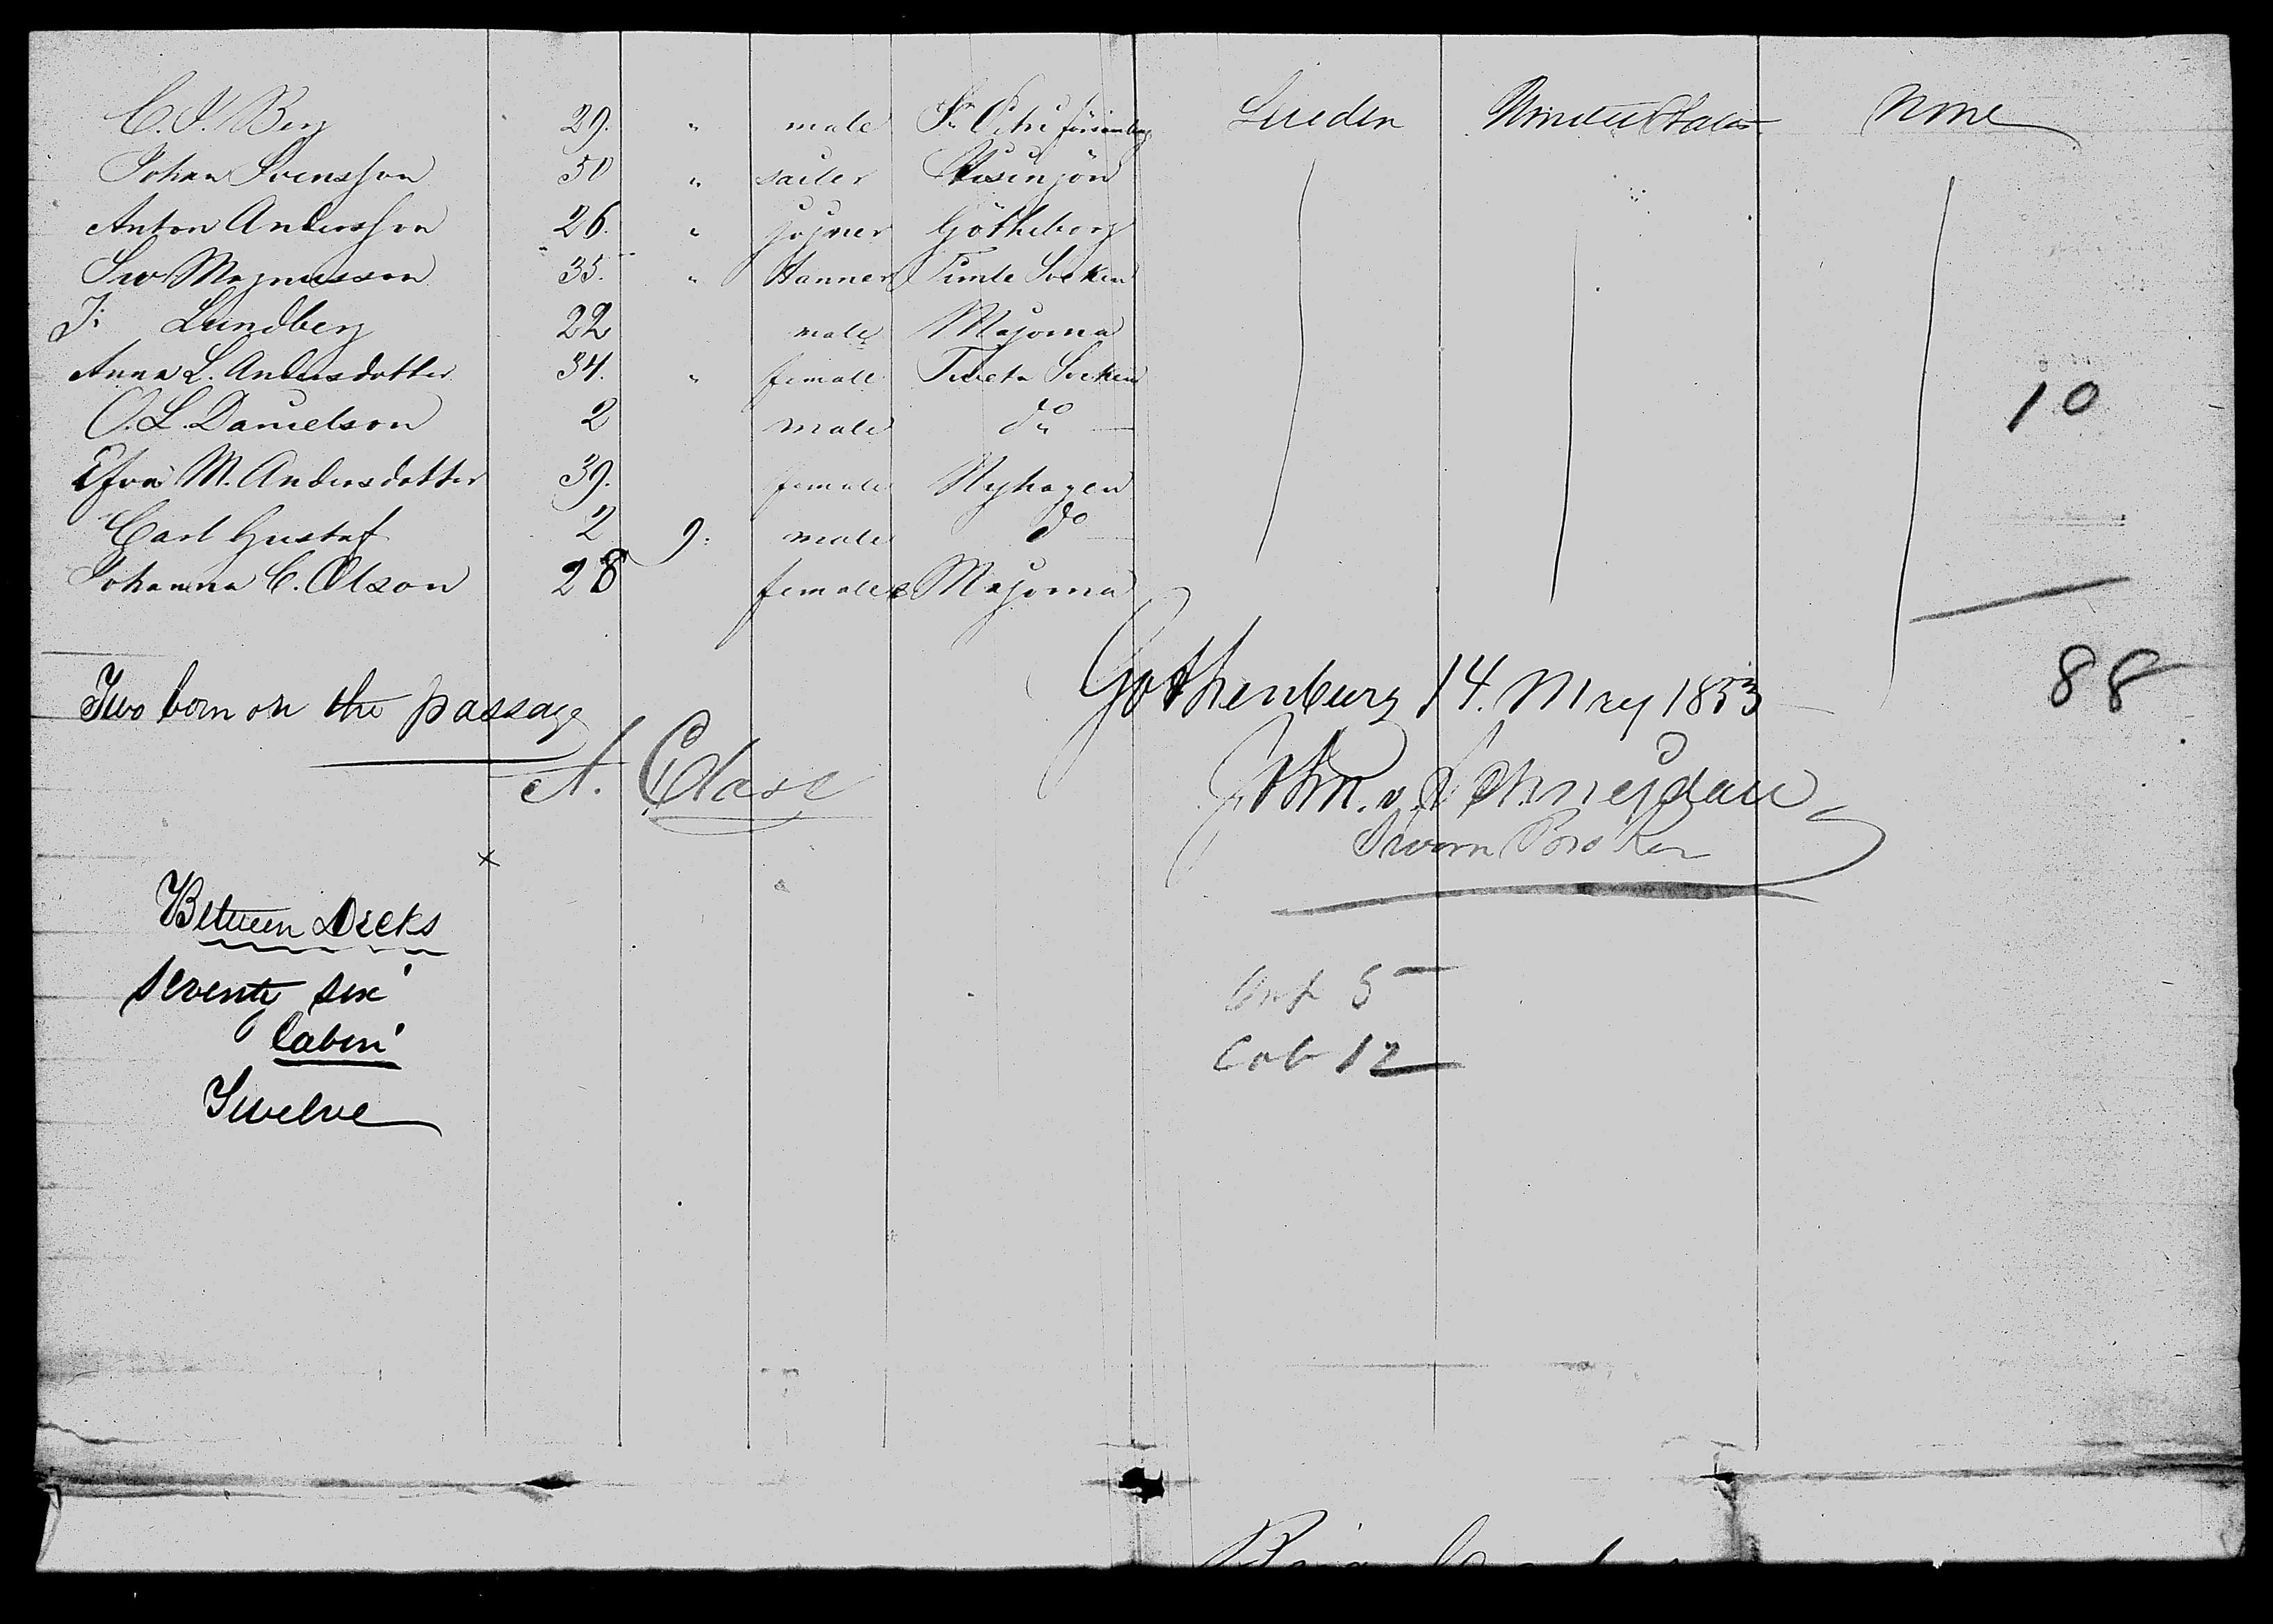 C. J. Berg 29. " male Sweden United States None
Johan Svensson 50 " sailer
Anton Andersson 26. " joiner Götheborg
Sw Magnusson 35. " Tanner Timle Socken
J: Lundberg 22 male Majorna
Anna L. Andersdotter 34. " female Tveta Socken
O. L. Danielson 2 male do
10
Efva M. Andersdotter 39. female Nyhagen
Carl Gustaf 2 9. male do
Johanna C. Olson 28 female Majorna
88
Two born on the passage
Gothenburg 14. May 1853
A. Clase
John. v. Schneidau
Sworn Broker
x
Between Decks
seventy six
Cabin
Twelve
Inf 5
Cab 12